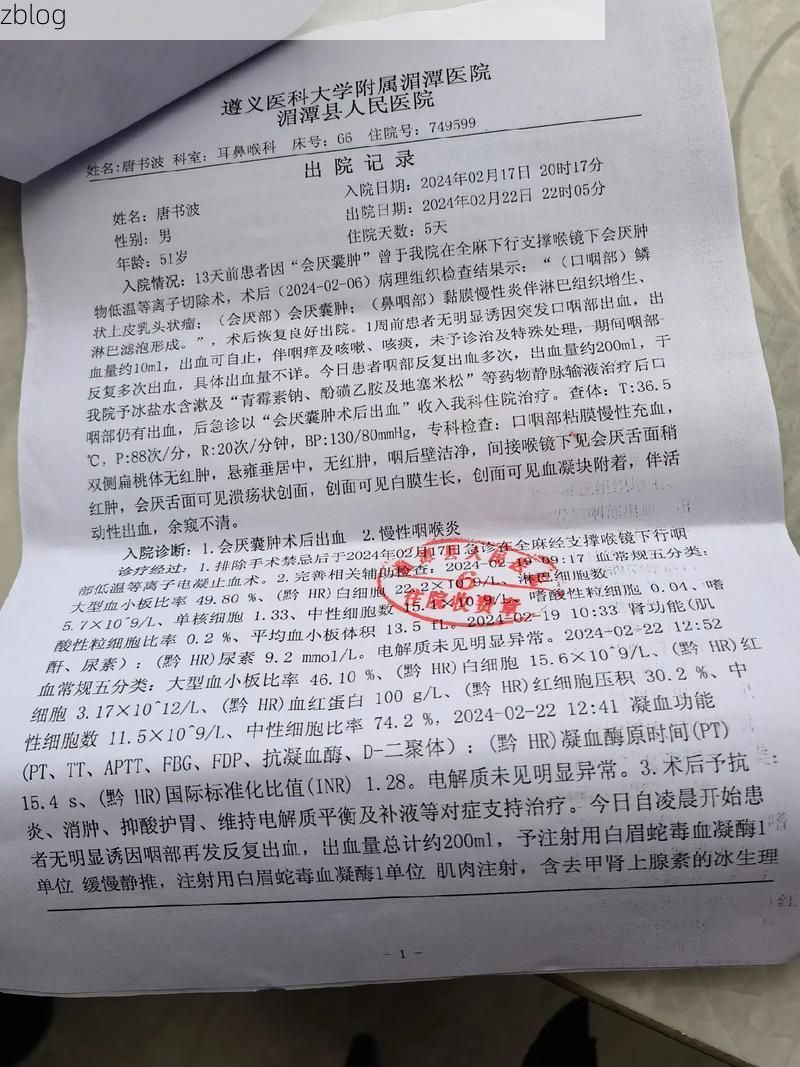 zblog
遵义医科大学附属湄潭医院
湄潭县人民医院
姓名:唐书波 科室: 耳鼻喉科 床号: 66 住院号: 749599
出 院 记 录
姓名: 唐书波
入院日期: 2024年02月17日 20时17分
性别: 男
出院日期: 2024年02月22日 22时05分
年龄: 51岁
住院天数: 5天
入院情况: 13天前患者因“会厌囊肿”曾于我院在全麻下行支撑喉镜下会厌肿
物低温等离子切除术, 术后 (2024-02-06) 病理组织检查结果示: “ (口咽部) 鳞
状上皮乳头状瘤; (会厌部) 会厌囊肿; (鼻咽部) 黏膜慢性炎伴淋巴组织增生、
淋巴滤泡形成。”, 术后恢复良好出院。1周前患者无明显诱因突发口咽部出血, 出
血量约10ml, 出血可自止, 伴咽痒及咳嗽、咳痰, 未予诊治及特殊处理, 期间咽部
反复多次出血, 具体出血量不详。今日患者咽部反复出血多次, 出血量约200ml, 于
我院予冰盐水含漱及“青霉素钠、酚磺乙胺及地塞米松”等药物静脉输液治疗后口
咽部仍有出血, 后急诊以“会厌囊肿术后出血”收入我科住院治疗。查体: T:36.5
℃, P:88次/分, R:20次/分钟, BP:130/80mmHg, 专科检查: 口咽部粘膜慢性充血,
双侧扁桃体无红肿, 悬雍垂居中, 无红肿, 咽后壁洁净, 间接喉镜下见会厌舌面稍
红肿, 会厌舌面可见溃疡状创面, 创面可见白膜生长, 创面可见血凝块附着, 伴活
动性出血, 余窥不清。
入院诊断: 1.会厌囊肿术后出血 2.慢性咽喉炎
诊疗经过: 1.排除手术禁忌后于2024年02月17日急诊在全麻经支撑喉镜下行咽
部低温等离子电凝止血术。2.完善相关辅助检查: 2024-02-19 09:17 血常规五分类:
大型血小板比率 49.80 %、(黔 HR)白细胞 22.2×10^9/L、淋巴细胞数
5.7×10^9/L、单核细胞 1.33、中性细胞数 15.1×10^9/L、嗜酸性粒细胞 0.04、嗜
酸性粒细胞比率 0.2 %、平均血小板体积 13.5 fL。2024-02-19 10:33 肾功能(肌
酐、尿素): (黔 HR)尿素 9.2 mmol/L。电解质未见明显异常。2024-02-22 12:52
血常规五分类: 大型血小板比率 46.10 %、(黔 HR)白细胞 15.6×10^9/L、(黔 HR)红
细胞 3.17×10^12/L、(黔 HR)血红蛋白 100 g/L、(黔 HR)红细胞压积 30.2 %、中
性细胞数 11.5×10^9/L、中性细胞比率 74.2 %, 2024-02-22 12:41 凝血功能
(PT、TT、APTT、FBG、FDP、抗凝血酶、D-二聚体): (黔 HR)凝血酶原时间(PT)
15.4 s、(黔 HR)国际标准化比值(INR) 1.28。电解质未见明显异常。3.术后予抗
炎、消肿、抑酸护胃、维持电解质平衡及补液等对症支持治疗。今日自凌晨开始患
者无明显诱因咽部再发反复出血, 出血量总计约200ml, 予注射用白眉蛇毒血凝酶1
单位 缓慢静推, 注射用白眉蛇毒血凝酶1单位 肌肉注射, 含去甲肾上腺素的冰生理
- 1 -
住院收费章